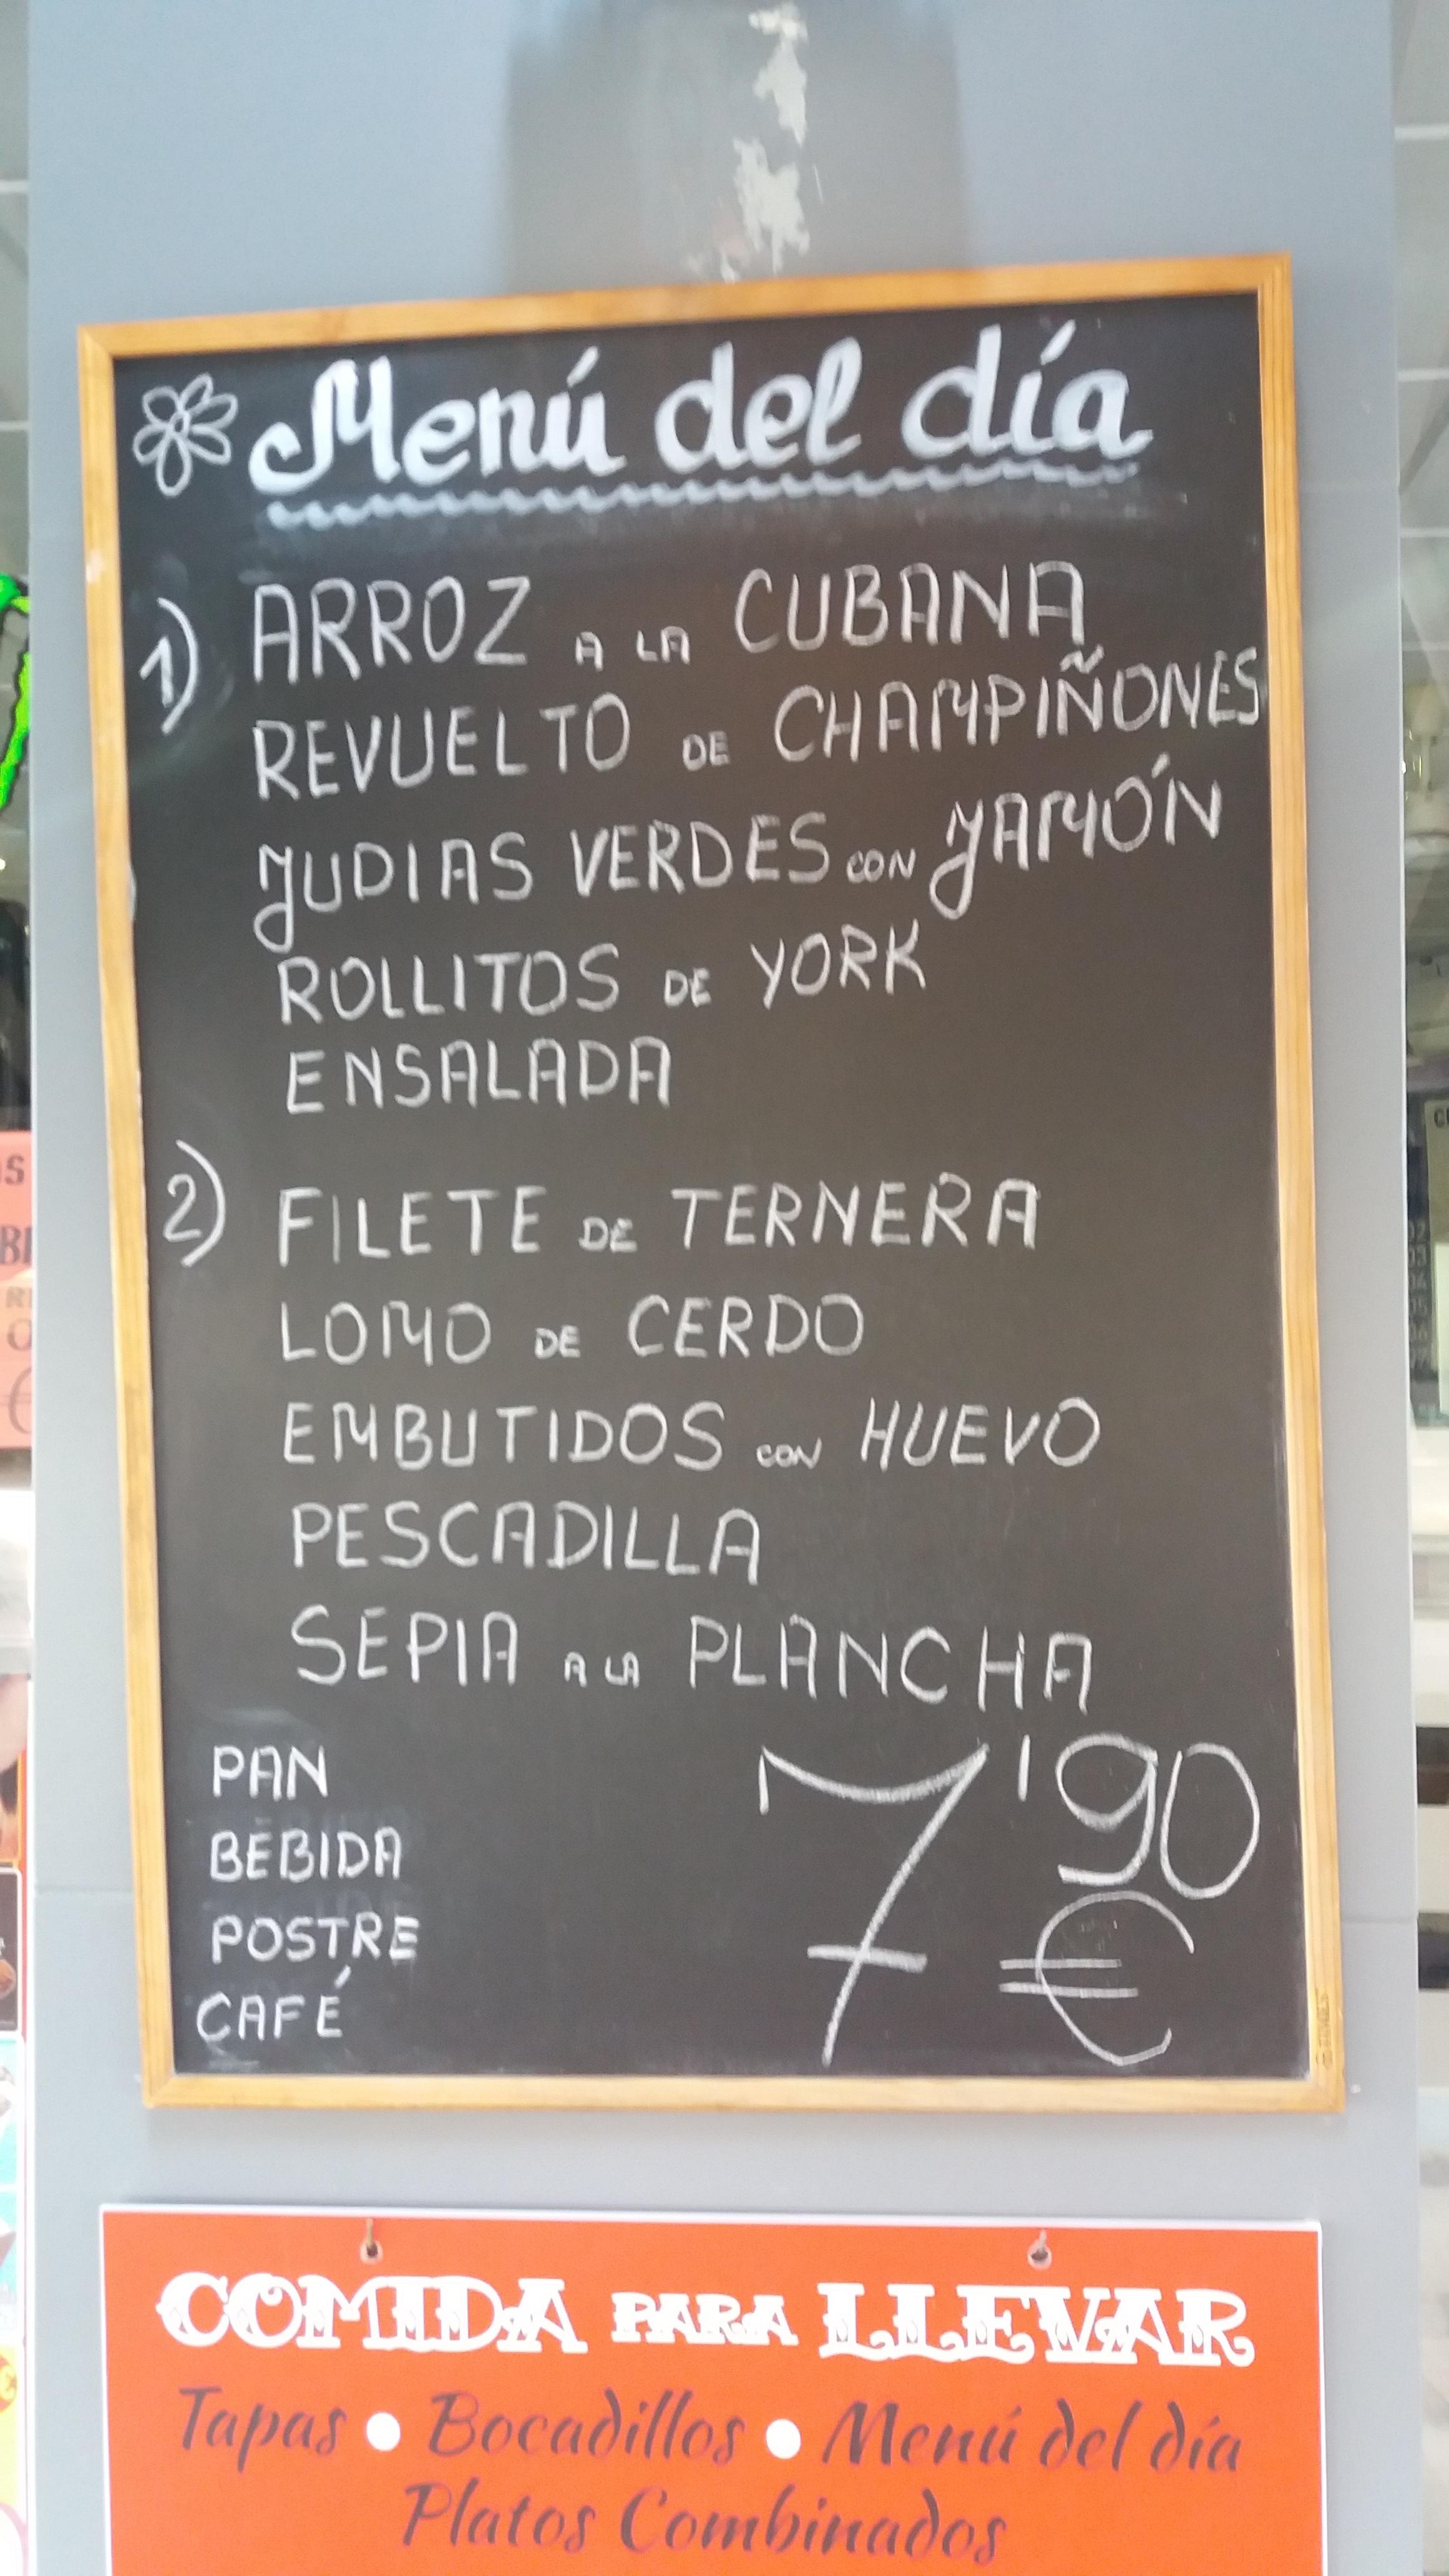 Menú del día
1) ARROZ A LA CUBANA
REVUELTO DE CHAMPIÑONES
JUDIAS VERDES CON JAMÓN
ROLLITOS DE YORK
ENSALADA
2) FILETE DE TERNERA
LOMO DE CERDO
EMBUTIDOS CON HUEVO
PESCADILLA
SEPIA A LA PLANCHA
PAN
BEBIDA
POSTRE
CAFÉ
7'90
€
COMIDA PARA LLEVAR
Tapas • Bocadillos • Menú del día
Platos Combinados